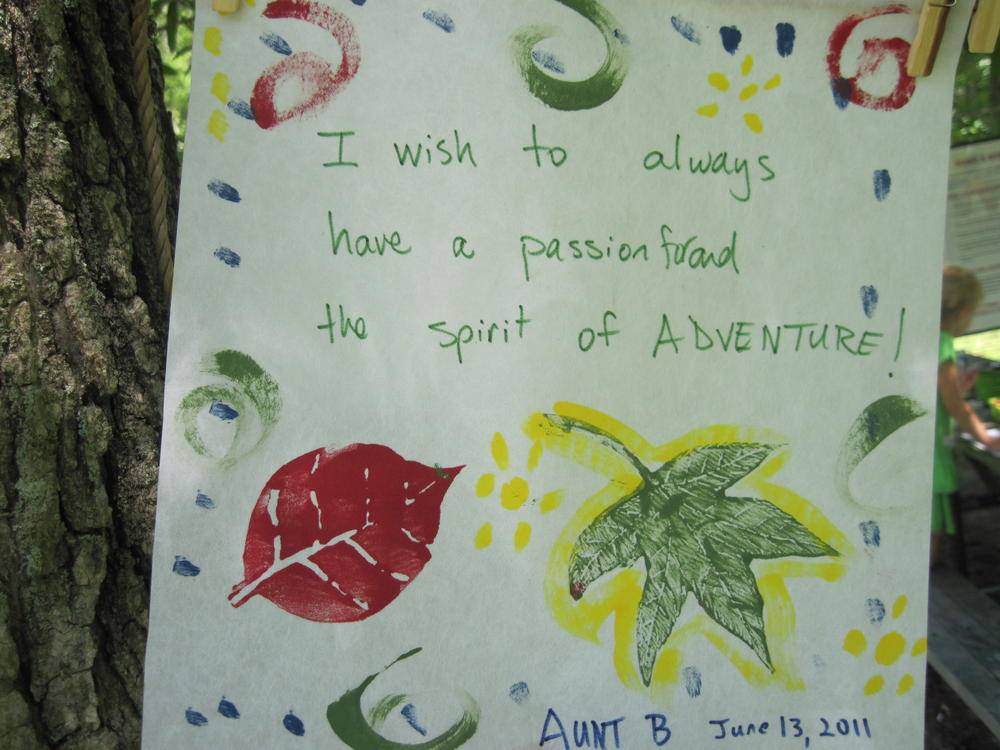 I wish to always
have a passion for and
the spirit of ADVENTURE!
AUNT B June 13, 2011